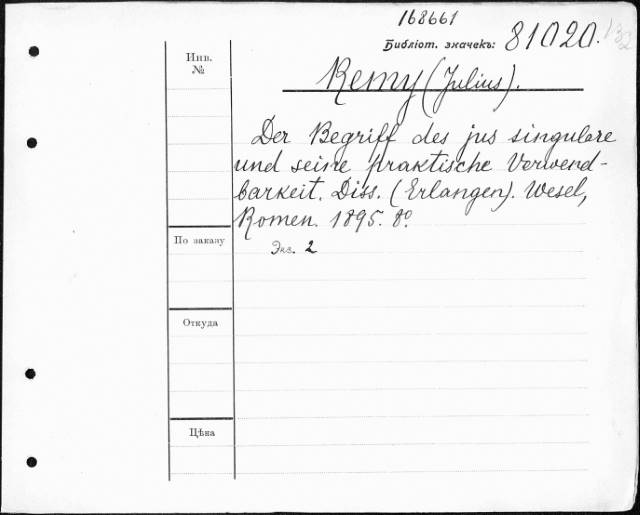 168661
Библіот. значекъ: 81020. 132
Инв.
№
Remy (Julius).
Der Begriff des jus singulare
und seine praktische Verwend-
barkeit. Diss. (Erlangen). Wesel,
Romen. 1895. 8º.
По заказу
Экз. 2
Откуда
Цѣна